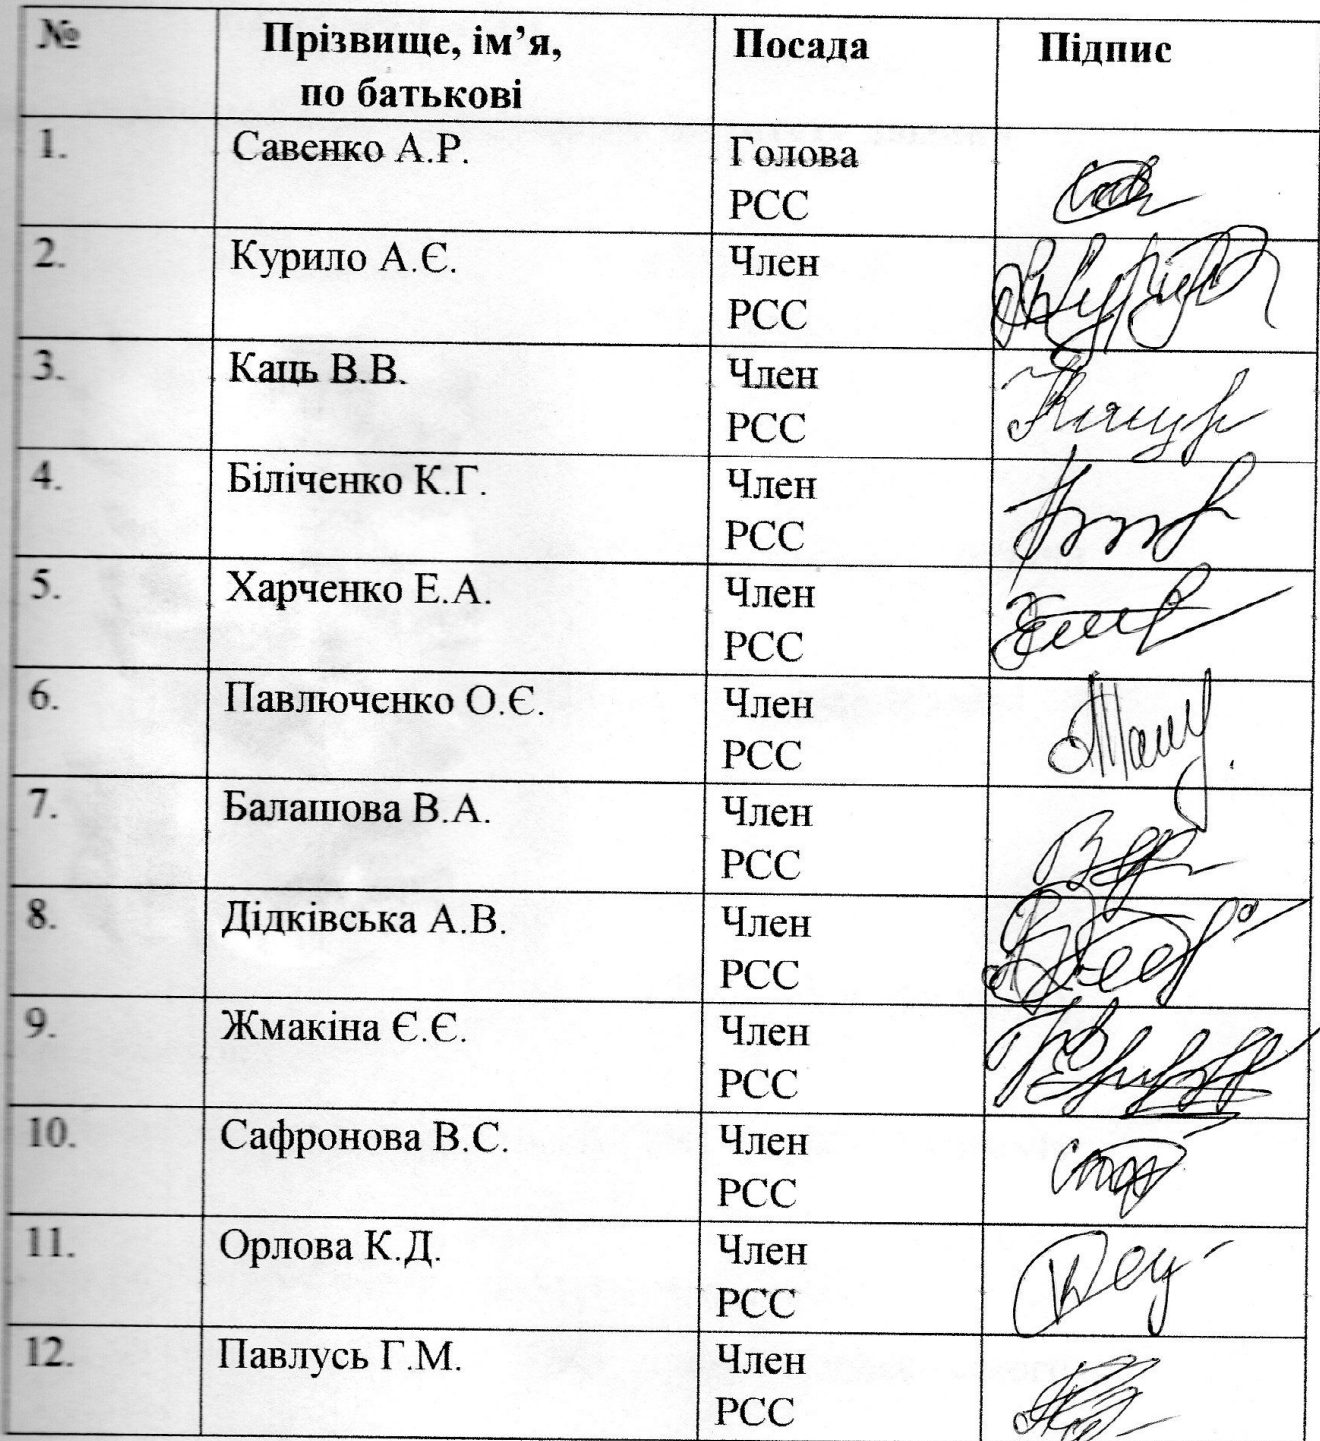 № Прізвище, ім’я, Посада Підпис
по батькові
1. Савенко А.Р. Голова
РСС
2. Курило А.Є. Член
РСС
3. Каць В.В. Член
РСС
4. Біліченко К.Г. Член
РСС
5. Харченко Е.А. Член
РСС
6. Павлюченко О.Є. Член
РСС
7. Балашова В.А. Член
РСС
8. Дідківська А.В. Член
РСС
9. Жмакіна Є.Є. Член
РСС
10. Сафронова В.С. Член
РСС
11. Орлова К.Д. Член
РСС
12. Павлусь Г.М. Член
РСС